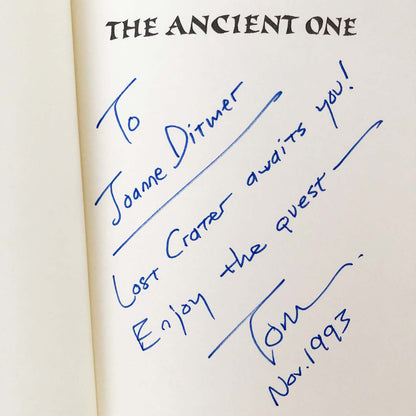 THE ANCIENT ONE
To
Joanne Ditmer
Lost Crater awaits you!
Enjoy the quest—
Tom
Nov. 1993